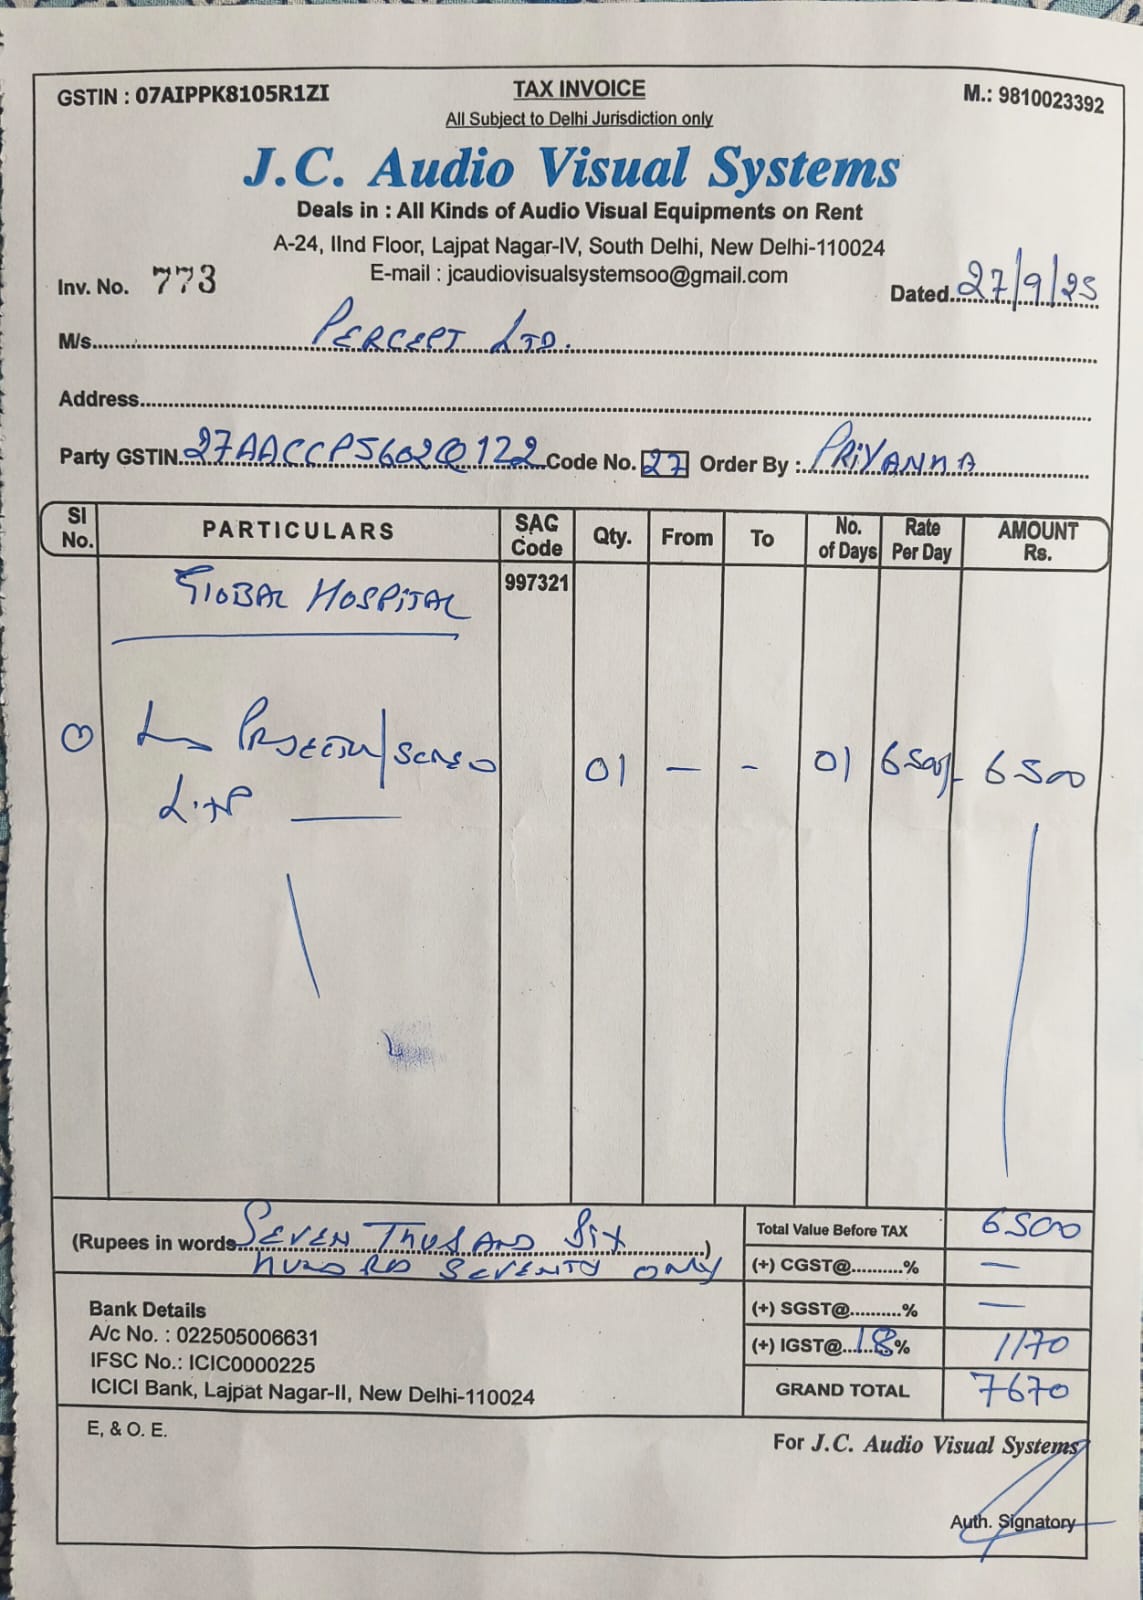 GSTIN : 07AIPPK8105R1ZI
TAX INVOICE
M.: 9810023392
All Subject to Delhi Jurisdiction only
J.C. Audio Visual Systems
Deals in : All Kinds of Audio Visual Equipments on Rent
A-24, IInd Floor, Lajpat Nagar-IV, South Delhi, New Delhi-110024
E-mail : jcaudiovisualsystemsoo@gmail.com
Inv. No. 773
Dated 27/9/25
M/s PERCEPT LTD.
Address
Party GSTIN 27AACCP5602Q1Z2 Code No. 27 Order By : PRIYANKA
Sl No. PARTICULARS SAC Code Qty. From To No. of Days Rate Per Day AMOUNT Rs.
GLOBAL HOSPITAL 997321
PROJECTOR/SCREEN 01 — - 01 6500/- 6500
(Rupees in words SEVEN THUSAND SIX
HUNDRD SEVENTY ONLY)
Total Value Before TAX 6500
(+) CGST@..........% —
(+) SGST@..........% —
(+) IGST@ 18% 1170
GRAND TOTAL 7670
Bank Details
A/c No. : 022505006631
IFSC No.: ICIC0000225
ICICI Bank, Lajpat Nagar-II, New Delhi-110024
E, & O. E.
For J.C. Audio Visual Systems
Auth. Signatory